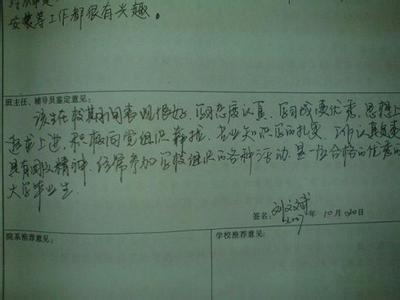 安装等工作都很有兴趣。
班主任、辅导员鉴定意见：
该生在校期间表现很好，学习态度认真，学习成绩优秀，思想上
要求上进，积极向党组织靠拢，专业知识学的扎实，工作认真负责
具有团队精神，经常参加学校组织的各种活动，是一位合格的优秀的
大学毕业生
签名：刘文斌
2007年10月20日
院系推荐意见：
学校推荐意见：